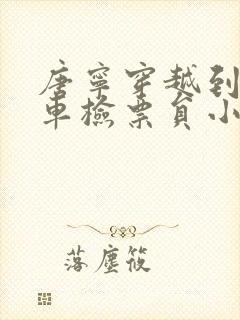 唐寧穿越到
車檢票員小
落塵筱